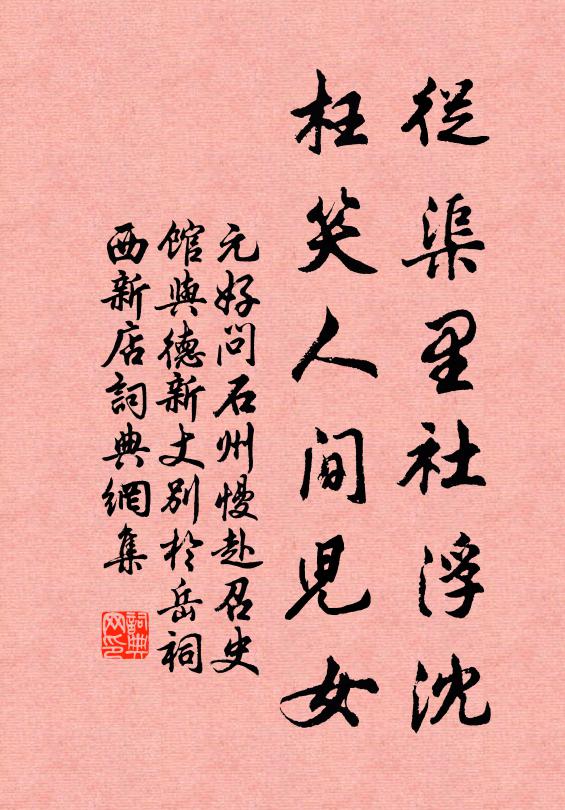 從渠里社浮沈
枉笑人間兒女
元好問石州慢赴召史
館與德新丈別於岳祠
西新店詞典網集
詞典
网印